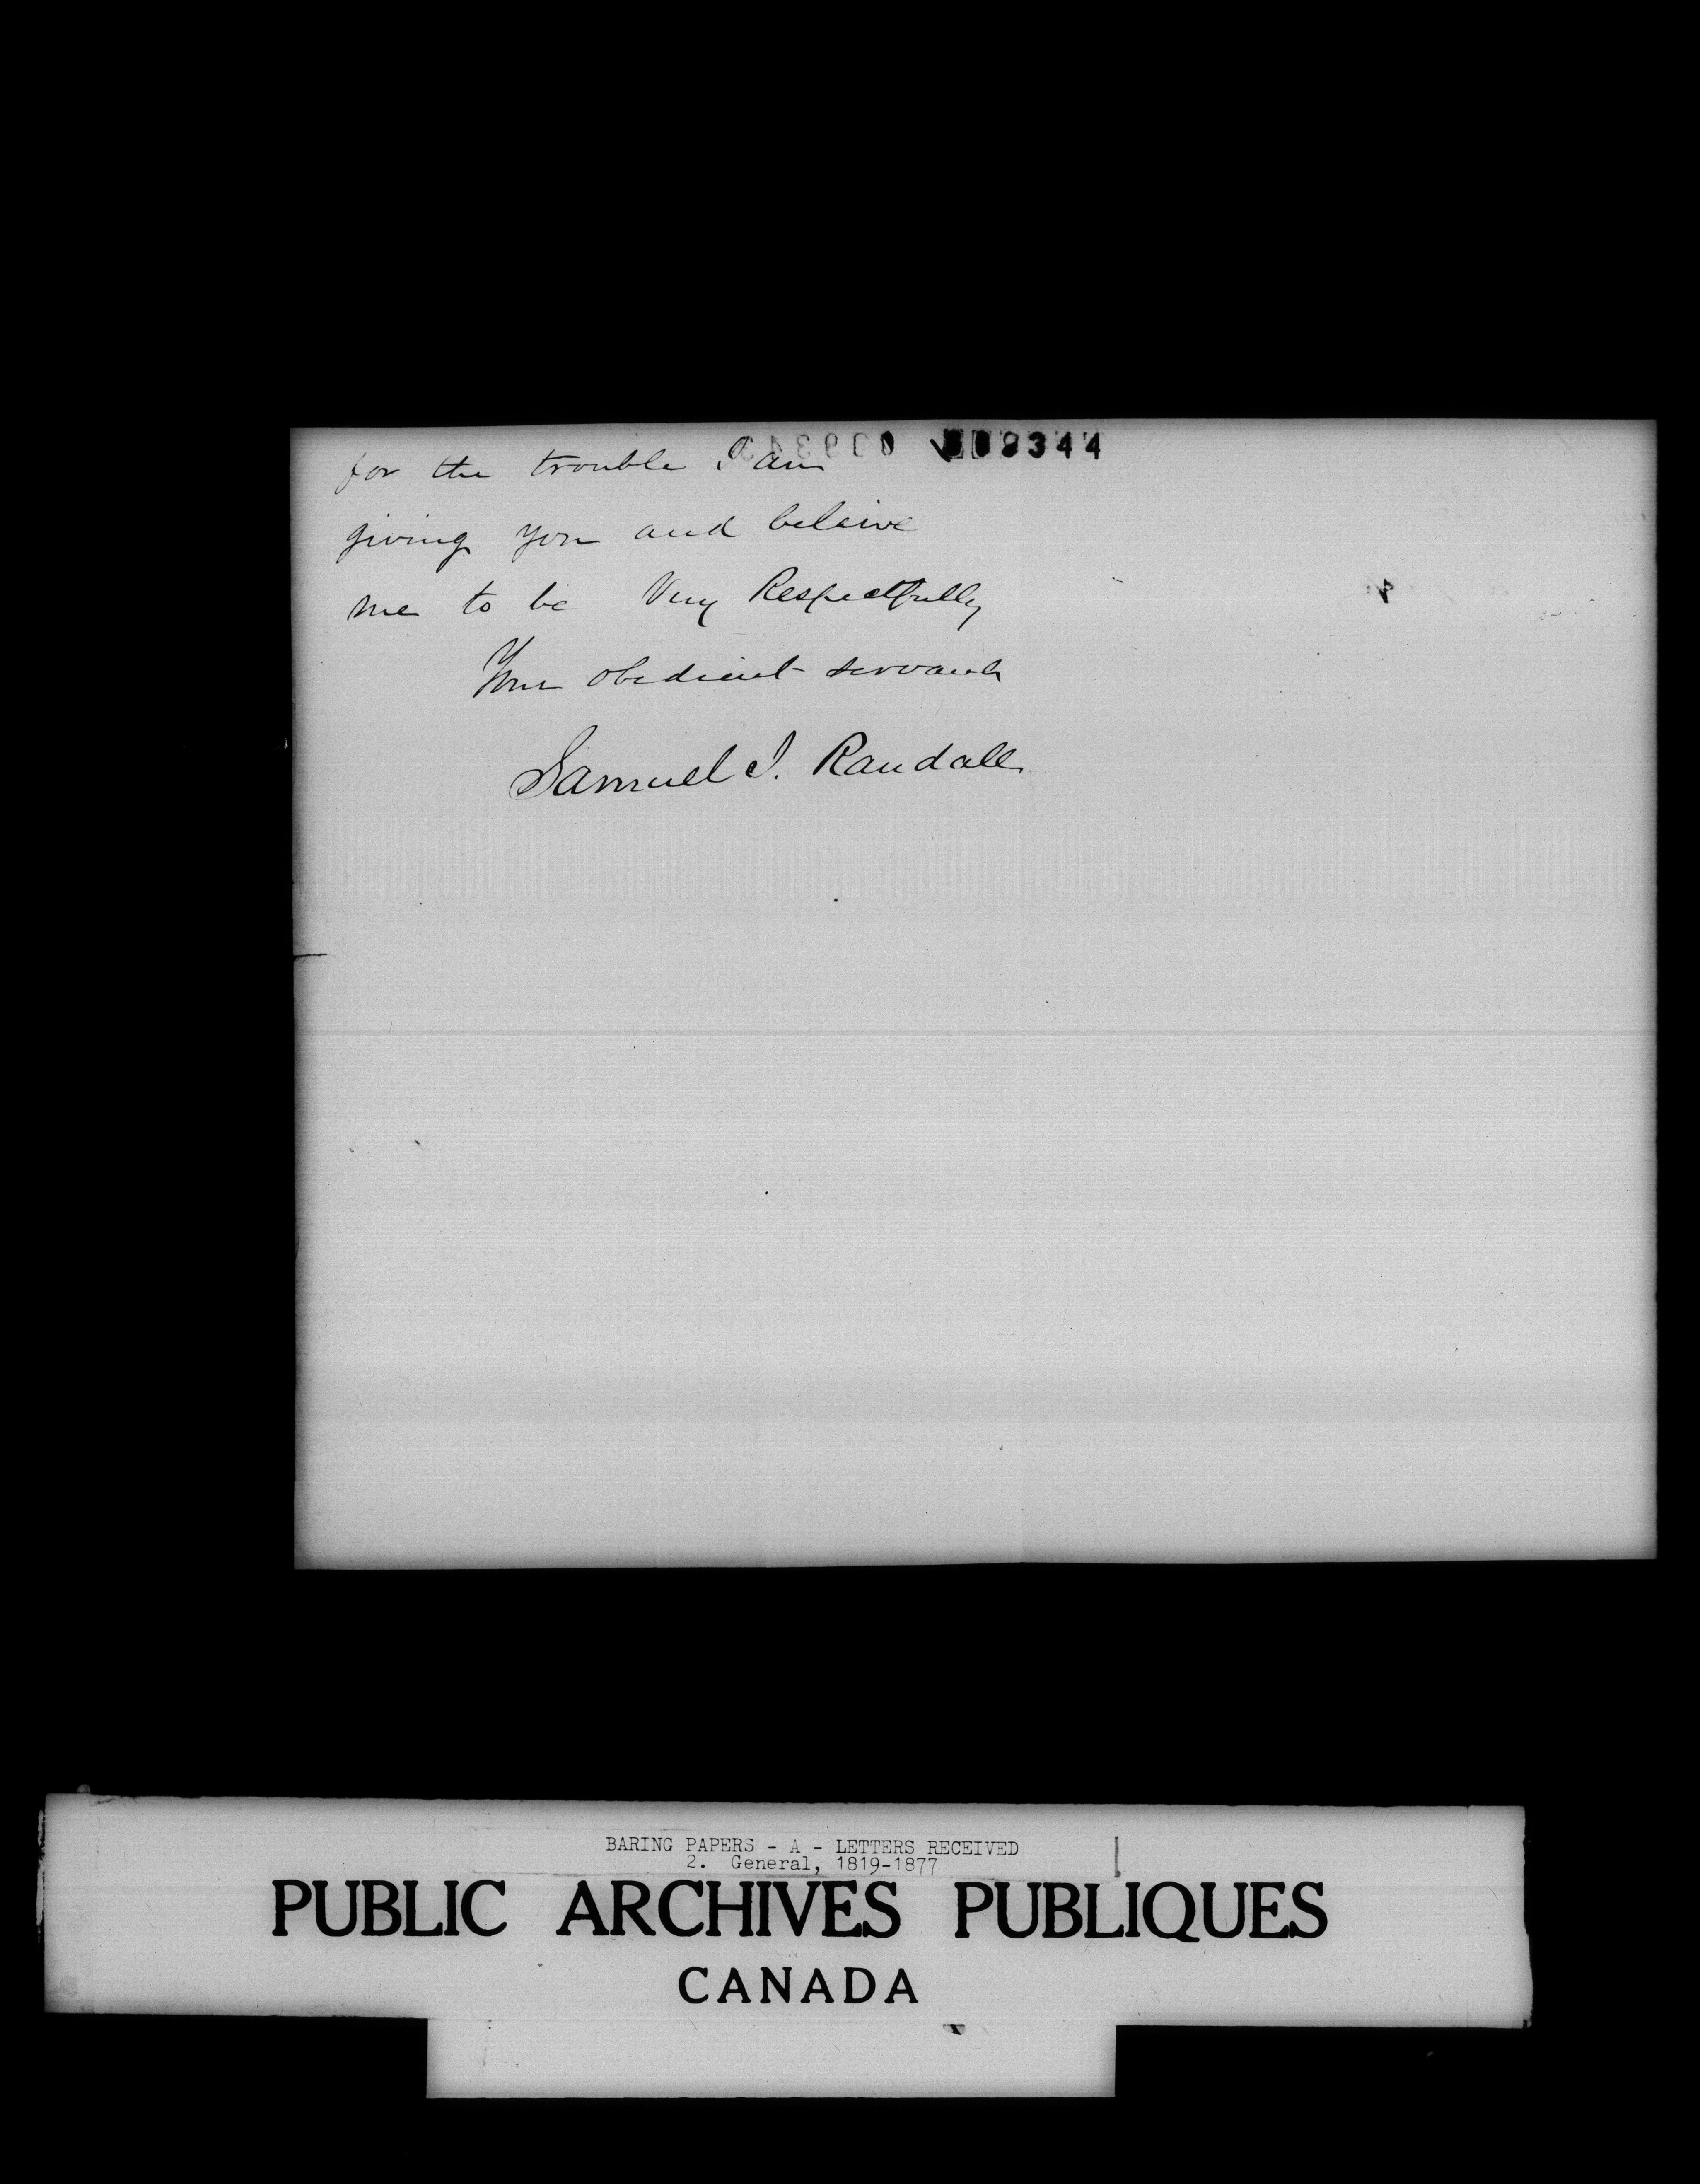 009344
for the trouble I am
giving you and beleive
me to be Very Respectfully
Your obedient servant
Samuel J. Randall
BARING PAPERS - A - LETTERS RECEIVED
2. General, 1819-1877
PUBLIC ARCHIVES PUBLIQUES
CANADA